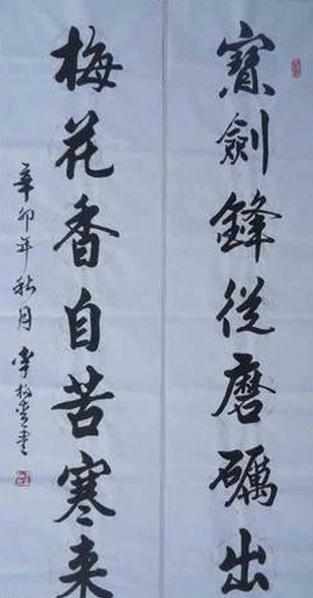 寳劍鋒從磨礪出
梅花香自苦寒来
辛卯年秋月